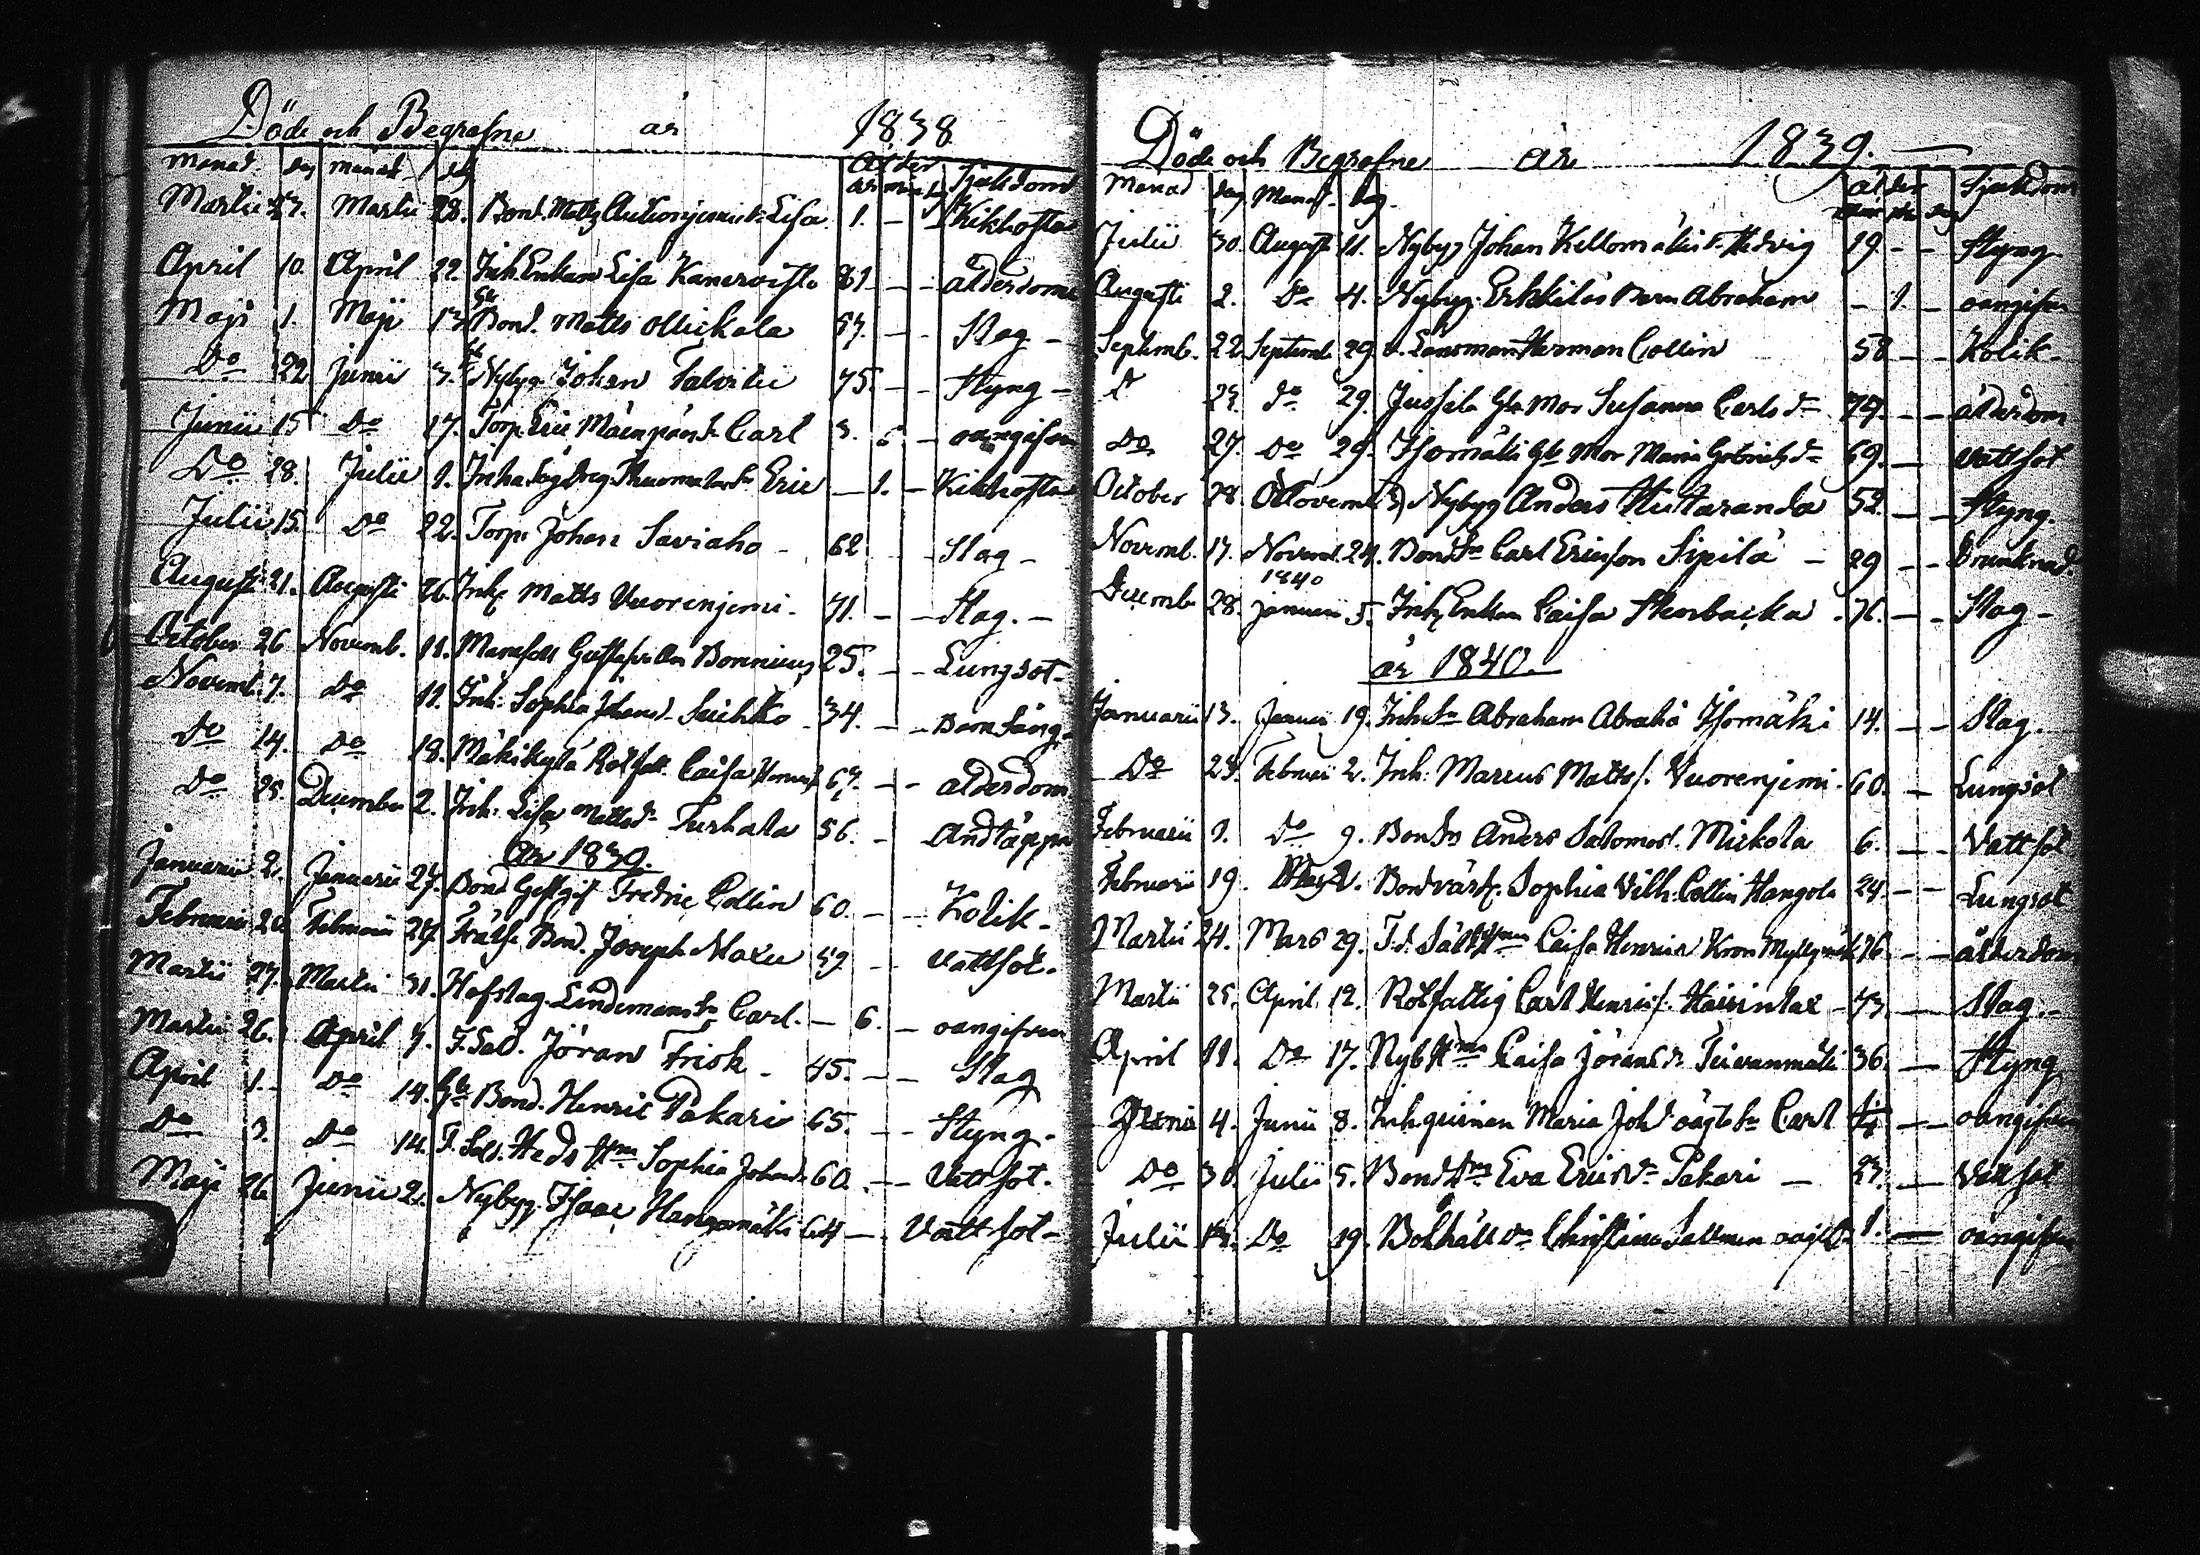 Döde och Begrafne år 1838
Månad dag månad dag Ålder Sjukdom
Martii 27. Martii 28. Bond. Matts Lisa 1. – Kikhosta
April 10. April 22. Inh. Enkan Lisa Kanervisto 81 – – ålderdom
Maji 1. Maji 13 Bond. Matts Ollickala 57. – – Slag –
Do 22 Junii 3. Nybyg. Johan Talvitie 75. – – Styng –
Junii 15 Do 17. Torp. Eric Mäenpää Carl 3. 6 – oangifven
Do 28. Julii 1. Eric – 1. – Kikhosta
Julii 15. Do 22. Torp. Johan Saviaho – 62 – Slag –
Augusti 21. Augusti 26. Inh. Matts Vuorenjemi – 71. – – Slag. –
October 26 Novemb. 11. Bonnieus 25. – – Lungsot –
Novemb. 7. Do 11. Inh. Sophia Johansd. Suihko – 34. – – Barnsäng –
Do 14. Do 18. Mäkikylä Rotfatt. Caisa 67. – – ålderdom
Do 25. December 2. Inh. Lisa Mattsd. Turkala 56. – Andtäppa
År 1839.
Januarii 2. Januarii 27. Bond Gestgif. Fredric Collin 60. – – Kolik –
Februarii Februarii 24. Bond. Joseph 59 – – Vattsot –
Martii 27. Martii 31. Hofslag. Lindemans Carl. – 6. – oangifven
Martii 26. April 7. F. Sold. Jöran Frisk – 45. – – Slag
April 1. – Do 14. Bond. Henric Pakari 65. – – Styng –
Do 3. Do 14. F. Sold. Heds Sophia Johansd. 60. – – Vattsot –
Maji 26 Junii 2. Nybygg. Isaac Hangasmäki 64 – – Vattsot –
Döde och Begrafne år 1839. –
Månad dag Månad dag. ålder Sjukdom
Julii 30. Augusti 11. Nybyg. Johan Kellomäkis Hedvig 19. – – Styng
Augusti 2. Do 4. Nybyg. Erkkiläs Barn Abraham – 1 – oangifven
Septemb. 22. Septemb 29. Länsman Herman Collin 58 – – Kolik –
do 29. Jussila Mor Susanna Carls dr – – ålderdom
Do 27. Do 29. Isomäki Mor Maria Gabriels dr 69. – Vattsot
October 28. Nybygg Anders 52. – – Styng.
Novemb. 17. Novemb. 24. Bond Sn Carl Ericsson Sipilä – 29 – – Drunknad
1840
Decemb. 28. Januarii 5. Inh. Enkan Caisa Skorbacka – 76. – – Slag –
år 1840. –
Januarii 13. Januarii 19. Inh. Sn Abraham Isomäki 14. – – Slag.
Do Februarii 2. Inh. Marcus Matts s. Vuorenjemi – 60. – Lungsot
Februarii 1. Do 9. Anders Salomos. Mickola 6. – – Vattsot
Februarii 19. Sophia Vilh. Collin Hangola 24. – – Lungsot
Martii 24. Mars 29. Caisa Henrics 76 – – ålderdom
Martii 25. April 12. Rotfattig Carl Henrics. – 73. – Slag. –
April 11. Do 17. Nyb Caisa Jörans dr Taivanmäki 36. – Styng
Junii 4. Junii 8. Inh qvinnan Maria Joh oägta Sn Carl – – oangifven
Do 30. Julii 5. Bond Eva Erics dr Pakari – – Vattsot
Julii Do 19. Christina Sallmen 1. – oangifven